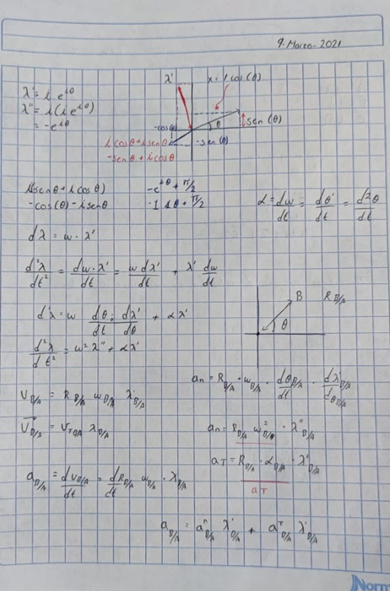 9-Marzo-2021
λ' = i e^{iθ}
λ'' = i(i e^{iθ})
= -e^{iθ}
λ'
x = 1 cos(θ)
θ
sen(θ)
-cosθ
-sen(θ)
i cosθ + i senθ
-senθ + i cosθ
i(senθ + i cosθ)
-e^{iθ} + π/2
-cos(θ) - i senθ
-1 iθ + π/2
α = dω/dt = dθ'/dt = d²θ/dt
dλ = ω · λ'
d²λ/dt² = dω·λ'/dt = ω dλ'/dt + λ' dω/dt
dλ = ω dθ/dt dλ'/dθ + αλ'
d²λ/dt² = ω² λ'' + αλ'
B
R B/A
θ
an = R B/A · ω B/A · dθ B/A/dt · dλ' B/A/dθ B/A
V B/A = R B/A ω B/A λ' B/A
an = R B/A ω² B/A · λ'' B/A
V B/A = V T B/A λ B/A
aT = R B/A · α B/A · λ' B/A
aT
a B/A = dV B/A/dt = dR B/A/dt ω B/A · λ B/A
a B/A = aⁿ B/A λ' B/A + aᵀ B/A λ' B/A
Norm